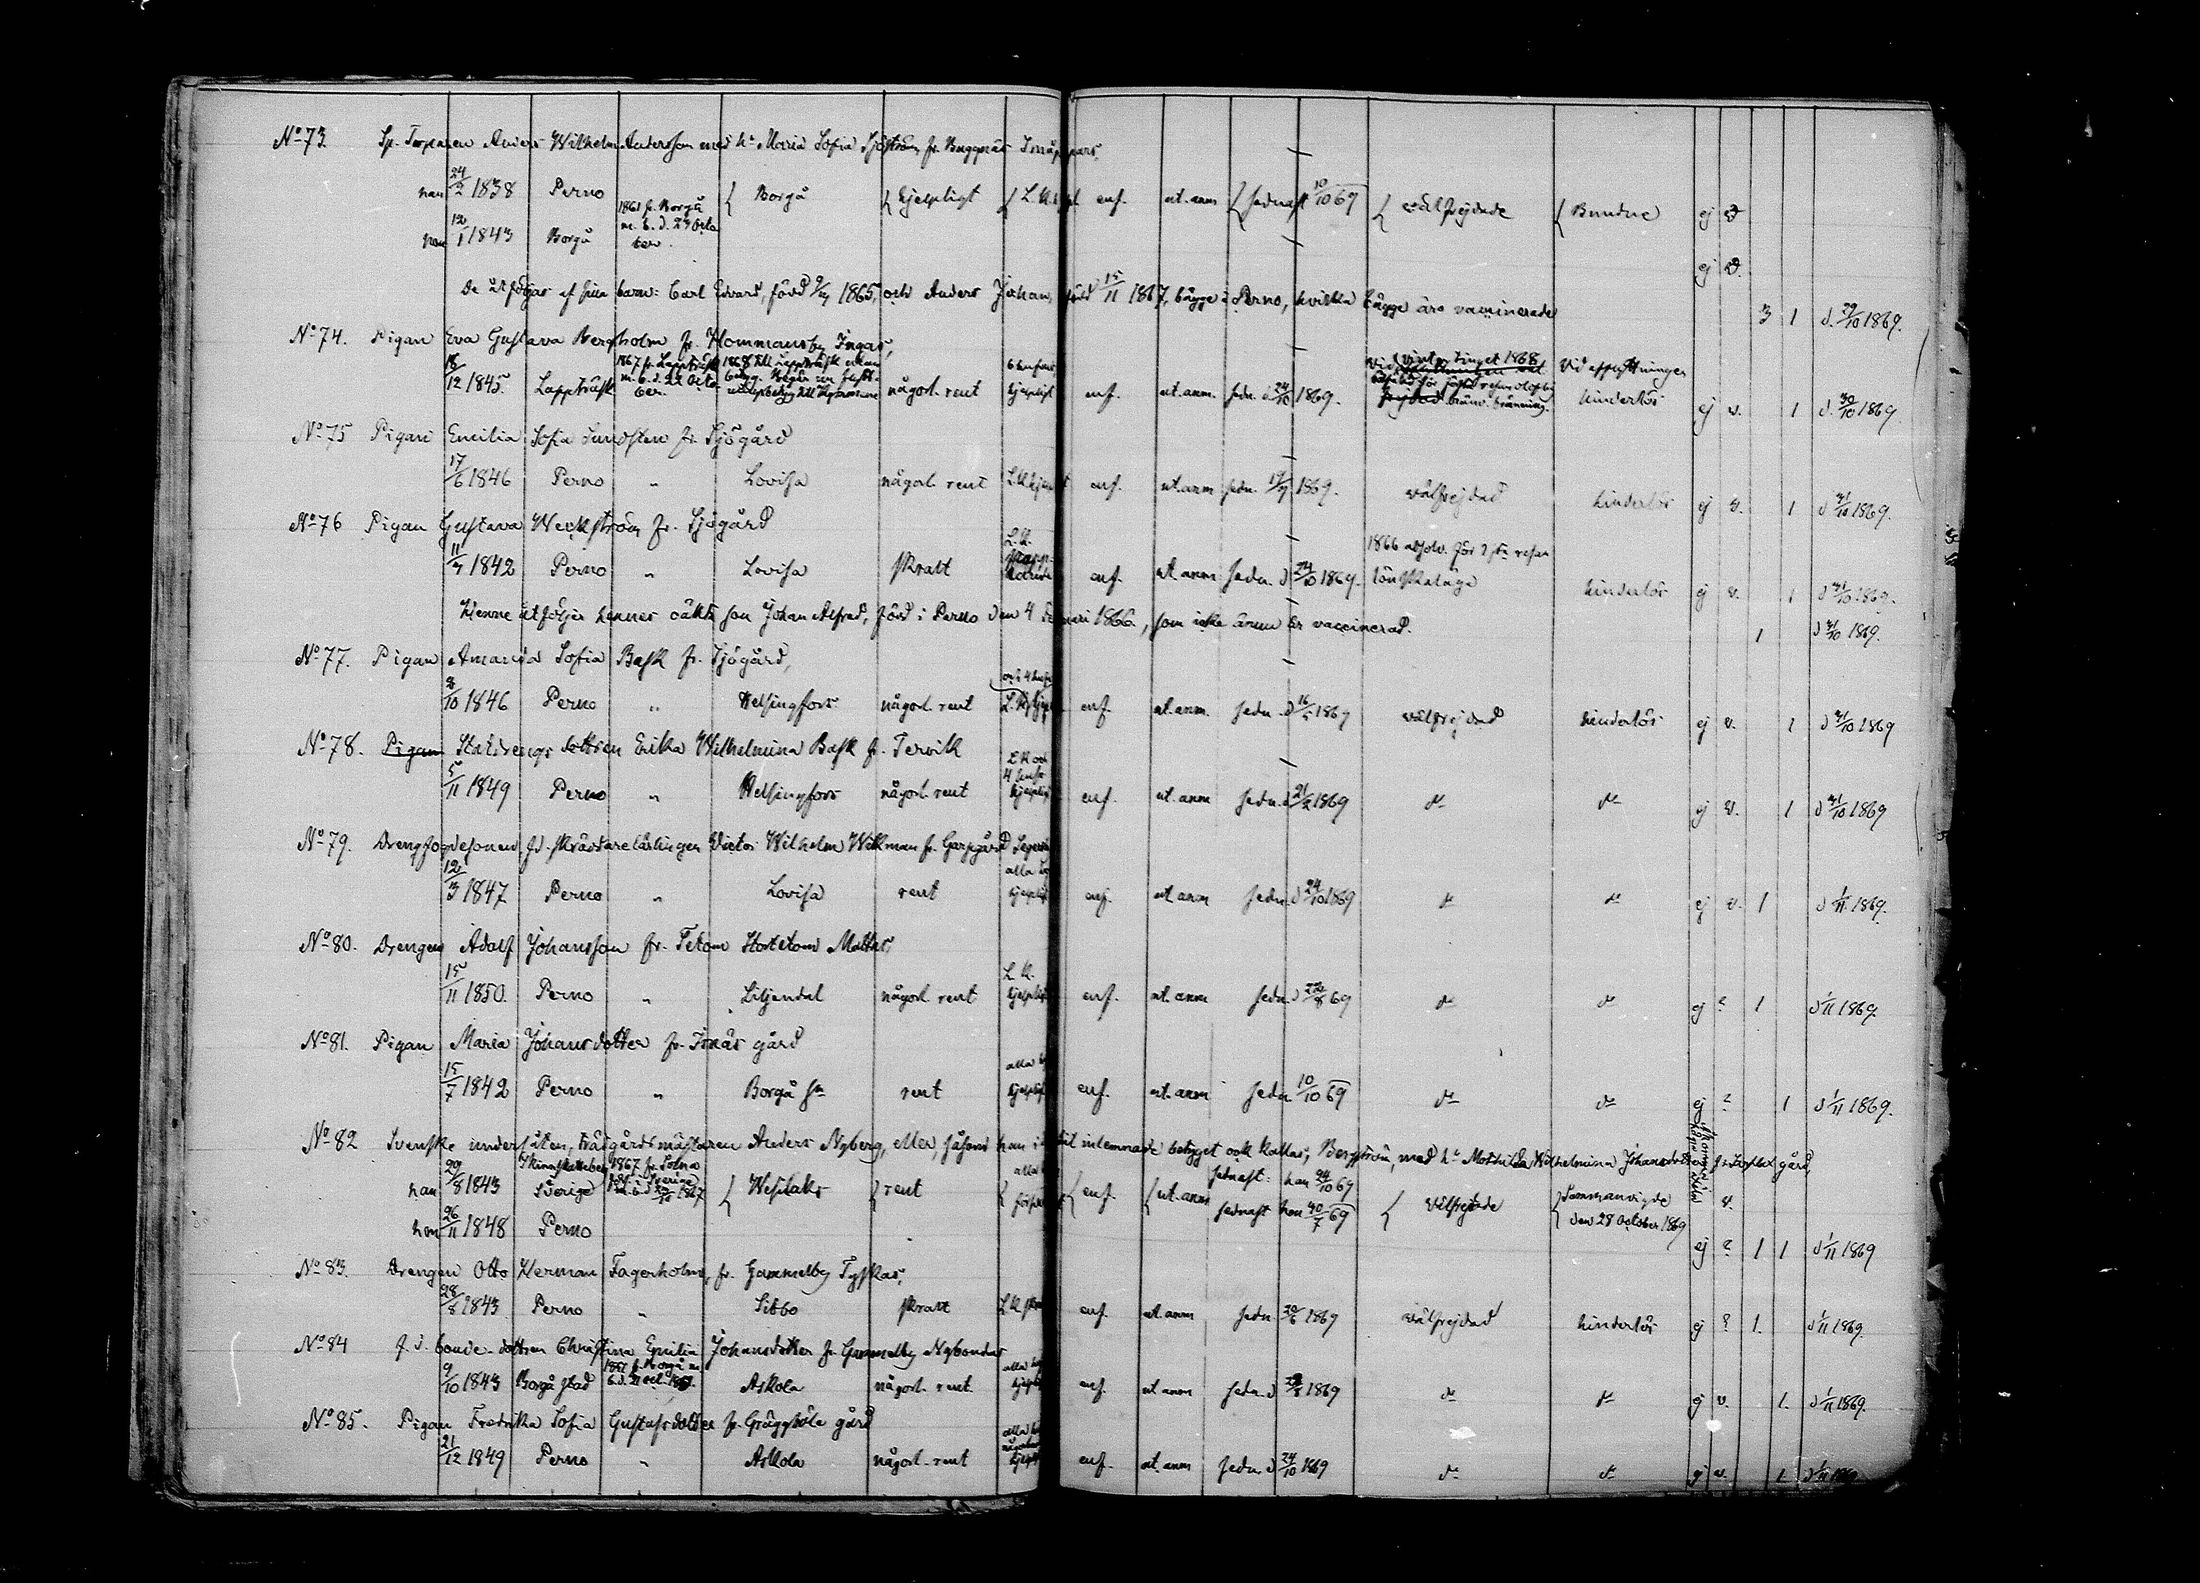 No 73. Sp. Torparen Anders Wilhelm Andersson med h. Maria Sofia Sjöström fr. Baggnäs
han 24/2 1838 Perno { Borgå { hjelpligt { L. K. enf. nt. anm { sednast 10/10 69 { välfrejdade { Bundne ej v
hon 12/1 1843 Borgå 1861 fr. Borgå m. b. d. 23 Octo ber. ej v.
De åtföljas af sina barn: Carl Edvard, född 1865, och Anders Johan, född 15/11 1867, bägge i Perno, hvilka bägge äro vaccinerade 3 1 d. 29/10 1869.
No 74. Pigan Eva Gustava Bergholm fr. Hommansby Ingas,
12 1845 Lappträsk 1867 fr. Lappträsk m. b. d. 22 Octo ber. 1868 till Lappträsk någorl. rent hjelpligt enf. nt. anm. sedn. d 24/10 1869. Vintertinget 1868 för första resan bränv. bränning. Vid afflyttningen hinderlös ej v. 1 d. 30/10 1869
No 75 Pigan Emilia Sofia Sundsten fr. Sjögård
17/6 1846 Perno " Lovisa någorl. rent enf. nt. anm sedn. 1869. välfrejdad hinderlös ej v. 1 d 31/10 1869.
No 76 Pigan Gustava Weckström fr. Sjögård
11 1842 Perno " Lovisa skralt L. K. enf. nt. anm sedn. d 24/10 1869. 1866 absolv. för 1sta resan lönskaläge hinderlös ej v. 1 d 31/10 1869.
Henne åtföljer hennes oäkta son Johan Alfred, född i Perno den 4 1866, som icke ännu är vaccinerad. 1 d 31/10 1869.
No 77. Pigan Amanda Sofia Bask fr. Sjögård,
10 1846 Perno " Helsingfors någorl. rent enf. nt. anm. sedn. d 1869 välfrejdad hinderlös ej v. 1 d 31/10 1869
No 78. Pigan Statdrengs dottren Erika Wilhelmina Bask fr. Tervik
5/11 1849 Perno " Helsingfors någorl. rent L K och 4 hufst. hjelpligt enf. nt. anm sedn. d 21 1869 do do ej v. 1 d 31/10 1869
No 79. Drengfogdesonen, f.d. skräddarelärlingen Victor Wilhelm Wikman fr. Garpgård
12/3 1847 Perno " Lovisa rent alla enf. nt. anm sedn. d 24/10 1869 do do ej v. 1 d 1/11 1869.
No 80. Drengen Adolf Johansson fr. Tetom Storetom Mattas,
15/11 1850. Perno " Liljendal någorl. rent L. K. hjelpligt enf. nt. anm sedn. d 22/8 69 do do ej ? 1 d 1/11 1869.
No 81. Pigan Maria Johansdotter fr. Isnäs gård
15/7 1842 Perno " Borgå sn rent alla enf. nt. anm sedn 10/10 69 do do ej ? 1 d 1/11 1869.
No 82 Svenske undersåten, trädgårdsmästaren Anders Nyberg, eller, såsom han i det inlemnade betyget ock kallas, Bergström, med h. Mathilda Wilhelmina Johansdotter fr. gård,
han 29/8 1843 Sverige 1867 fr. Solna { Wesilaks { rent { alla { enf. { nt. anm sednast: han 24/10 69 { välfrejdade { Sammanvigde den 28 October 1869 v.
hon 26/11 1848 Perno sednast hon 69 ej ? 1 1 d 1/11 1869
No 83. Drengen Otto Herman Fagerholm, fr. Gammelby Tyskas,
28/8 1843 Perno " Sibbo skralt enf. nt. anm sedn 20/6 1869 välfrejdad hinderlös ej ? 1. d 1/11 1869.
No 84 f. d. bonde-dottren Christina Emilia Johansdotter fr. Gammelby Nybondas
9/10 1843 Borgå stad Askola någorl. rent. enf. nt. anm sedn. d 1869 do do ej v. 1. d 1/11 1869.
No 85. Pigan Fredrika Sofia Gustafsdotter fr. Gräggböle gård
21/12 1849 Perno " Askola någorl. rent enf. nt. anm sedn. d 24/10 1869 do do ej v. 1 d 1/11